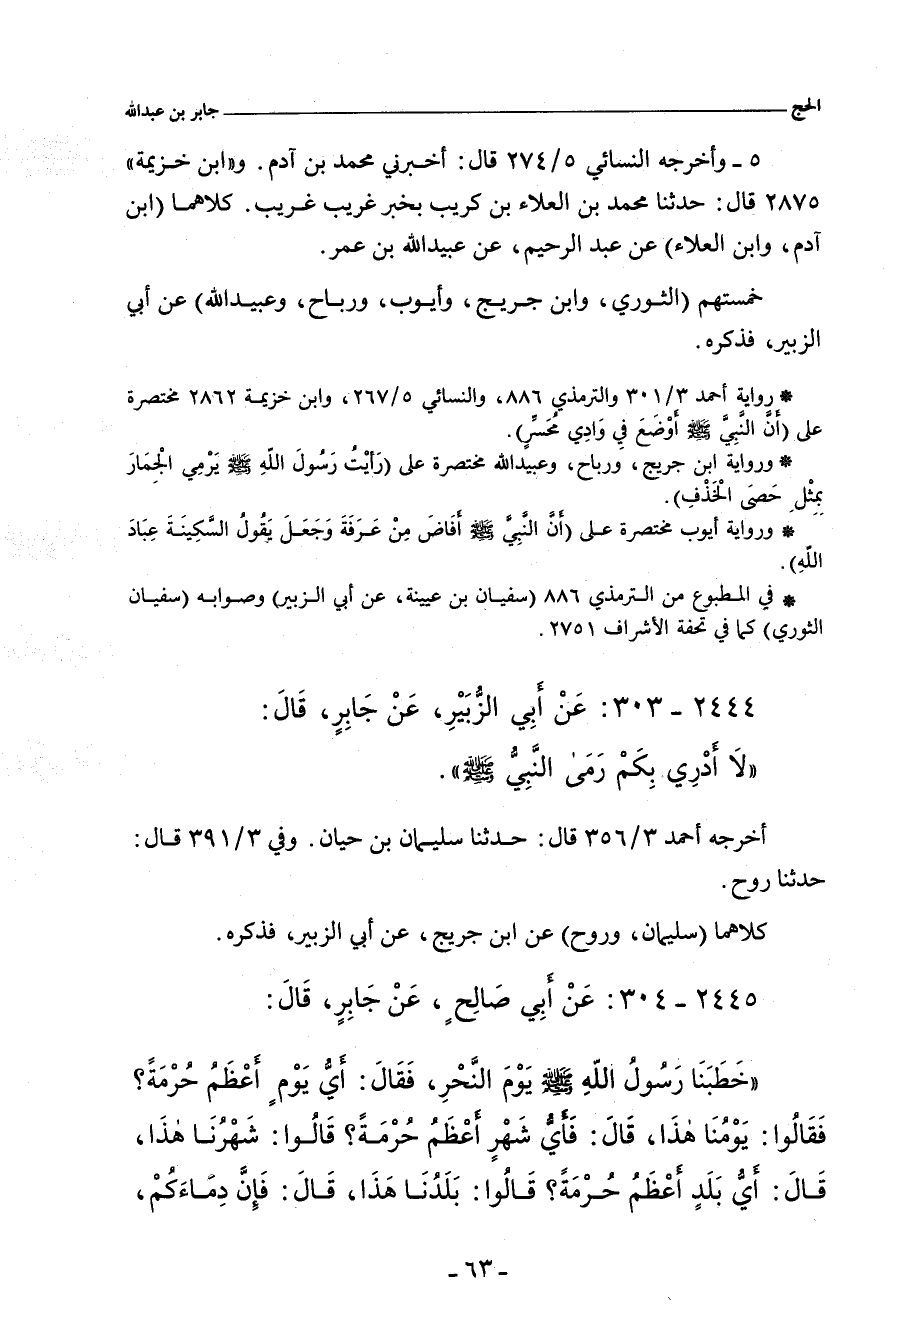 الحج ــــــــــــــــــــ جابر بن عبدالله
٥ ـ وأخرجه النسائي ٢٧٤/٥ قال: أخبرني محمد بن آدم. و«ابن خزيمة»
٢٨٧٥ قال: حدثنا محمد بن العلاء بن كريب بخبر غريب غريب. كلاهما (ابن
آدم، وابن العلاء) عن عبد الرحيم، عن عبيدالله بن عمر.
خمستهم (الثوري، وابن جريج، وأيوب، ورباح، وعبيدالله) عن أبي
الزبير، فذكره.
* رواية أحمد ٣٠١/٣ والترمذي ٨٨٦، والنسائي ٢٦٧/٥، وابن خزيمة ٢٨٦٢ مختصرة
على (أَنَّ النَّبِيَّ ﷺ أَوْضَعَ فِي وَادِي مُحَسِّرٍ).
* ورواية ابن جريج، ورباح، وعبيدالله مختصرة على (رَأَيْتُ رَسُولَ اللّهِ ﷺ يَرْمِي الْجِمَارَ
بِمِثْلِ حَصَى الْخَذْفِ).
* ورواية أيوب مختصرة على (أَنَّ النَّبِيَّ ﷺ أَفَاضَ مِنْ عَرَفَةَ وَجَعَلَ يَقُولُ السَّكِينَةَ عِبَادَ
اللّهِ).
* في المطبوع من الترمذي ٨٨٦ (سفيان بن عيينة، عن أبي الزبير) وصوابه (سفيان
الثوري) كما في تحفة الأشراف ٢٧٥١.
٢٤٤٤ ـ ٣٠٣: عَنْ أَبِي الزُّبَيْرِ، عَنْ جَابِرٍ، قَالَ:
«لَا أَدْرِي بِكَمْ رَمَىٰ النَّبِيُّ ﷺ».
أخرجه أحمد ٣٥٦/٣ قال: حدثنا سليمان بن حيان. وفي ٣٩١/٣ قال:
حدثنا روح.
كلاهما (سليمان، وروح) عن ابن جريج، عن أبي الزبير، فذكره.
٢٤٤٥ ـ ٣٠٤: عَنْ أَبِي صَالِحٍ، عَنْ جَابِرٍ، قَالَ:
«خَطَبَنَا رَسُولُ اللّهِ ﷺ يَوْمَ النَّحْرِ، فَقَالَ: أَيُّ يَوْمٍ أَعْظَمُ حُرْمَةً؟
فَقَالُوا: يَوْمُنَا هٰذَا، قَالَ: فَأَيُّ شَهْرٍ أَعْظَمُ حُرْمَةً؟ قَالُوا: شَهْرُنَا هٰذَا،
قَالَ: أَيُّ بَلَدٍ أَعْظَمُ حُرْمَةً؟ قَالُوا: بَلَدُنَا هَذَا، قَالَ: فَإِنَّ دِمَاءَكُمْ،
ـ ٦٣ ـ